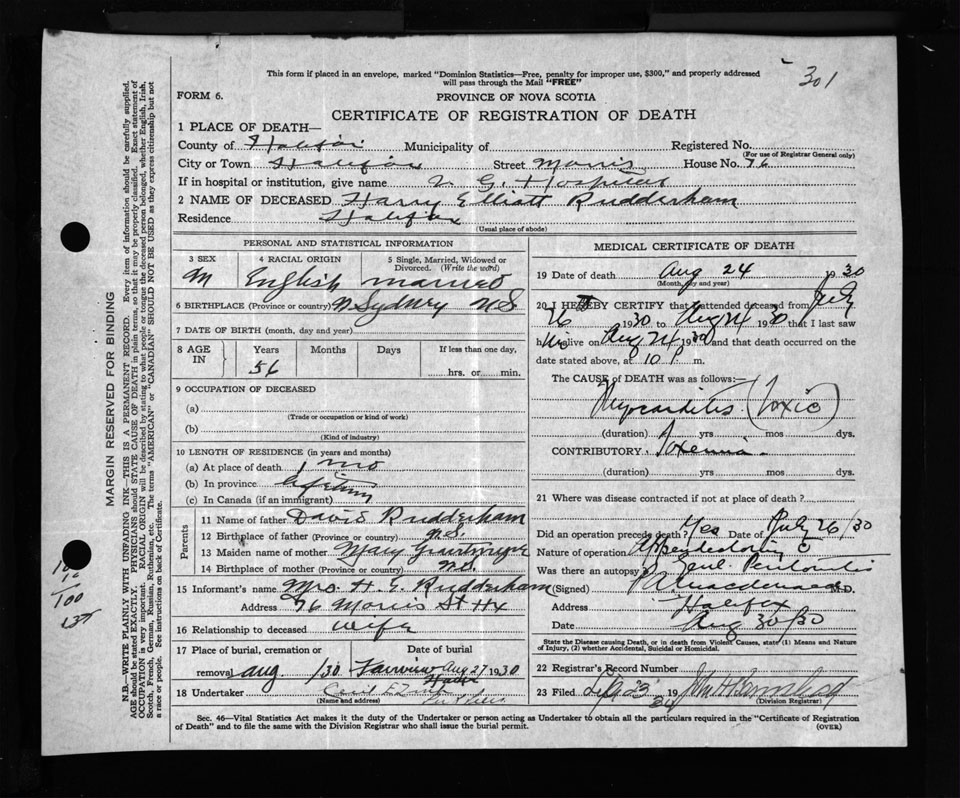 301
This form if placed in an envelope, marked "Dominion Statistics—Free, penalty for improper use, $300," and properly addressed
will pass through the Mail "FREE"
FORM 6.
PROVINCE OF NOVA SCOTIA
CERTIFICATE OF REGISTRATION OF DEATH
1 PLACE OF DEATH—
County of Halifax Municipality of Registered No.
(For use of Registrar General only)
City or Town Halifax Street Morris House No. 76
If in hospital or institution, give name V. G. Hospital
2 NAME OF DECEASED Harry Elliott Rudderham
Residence Halifax
(Usual place of abode)
PERSONAL AND STATISTICAL INFORMATION
3 SEX 4 RACIAL ORIGIN 5 Single, Married, Widowed or
Divorced. (Write the word)
M English married
6 BIRTHPLACE (Province or country) N Sydney N S
7 DATE OF BIRTH (month, day and year)
8 AGE IN Years Months Days If less than one day,
56 hrs. or min.
9 OCCUPATION OF DECEASED
(a)
(Trade or occupation or kind of work)
(b)
(Kind of industry)
10 LENGTH OF RESIDENCE (in years and months)
(a) At place of death 1 mo
(b) In province lifetime
(c) In Canada (if an immigrant)
Parents
11 Name of father David Rudderham
12 Birthplace of father (Province or country) N.S.
13 Maiden name of mother Mary
14 Birthplace of mother (Province or country) N.S.
15 Informant's name Mrs. H. E. Rudderham
Address 76 Morris St Hx
16 Relationship to deceased wife
17 Place of burial, cremation or Date of burial
removal Aug. /30 Fairview Aug 27 1930
18 Undertaker
(Name and address)
MEDICAL CERTIFICATE OF DEATH
19 Date of death Aug 24 1930
(Month, day and year)
20 I HEREBY CERTIFY that I attended deceased from July
26 1930 to Aug 24 1930 that I last saw
h alive on Aug 24 1930 and that death occurred on the
date stated above, at 10 P. m.
The CAUSE of DEATH was as follows:—
Myocarditis (Toxic)
(duration) yrs mos dys.
CONTRIBUTORY Toxemia
(duration) yrs mos dys.
21 Where was disease contracted if not at place of death?
Did an operation precede death? Yes Date of July 26/30
Nature of operation Appendectomy
Was there an autopsy Genl. Peritonitis
(Signed) M.D.
Address Halifax
Date Aug 30/30
State the Disease causing Death, or in death from Violent Causes, state (1) Means and Nature
of Injury, (2) whether Accidental, Suicidal or Homicidal.
22 Registrar's Record Number
23 Filed 23 19
(Division Registrar)
Sec. 46—Vital Statistics Act makes it the duty of the Undertaker or person acting as Undertaker to obtain all the particulars required in the "Certificate of Registration
of Death" and to file the same with the Division Registrar who shall issue the burial permit.
(OVER)
MARGIN RESERVED FOR BINDING
N.B.—WRITE PLAINLY WITH UNFADING INK—THIS IS A PERMANENT RECORD. Every item of information should be carefully supplied.
AGE should be stated EXACTLY. PHYSICIANS should STATE CAUSE OF DEATH in plain terms, so that it may be properly classified. Exact statement of
OCCUPATION is very important. RACIAL ORIGIN will be described by stating to what people or tongue the deceased person belonged, whether English, Irish,
Scotch, French, German, Russian, Ruthenian, etc. The terms "AMERICAN" or "CANADIAN" SHOULD NOT BE USED as they express citizenship but not
a race or people. See instructions on back of Certificate.
100